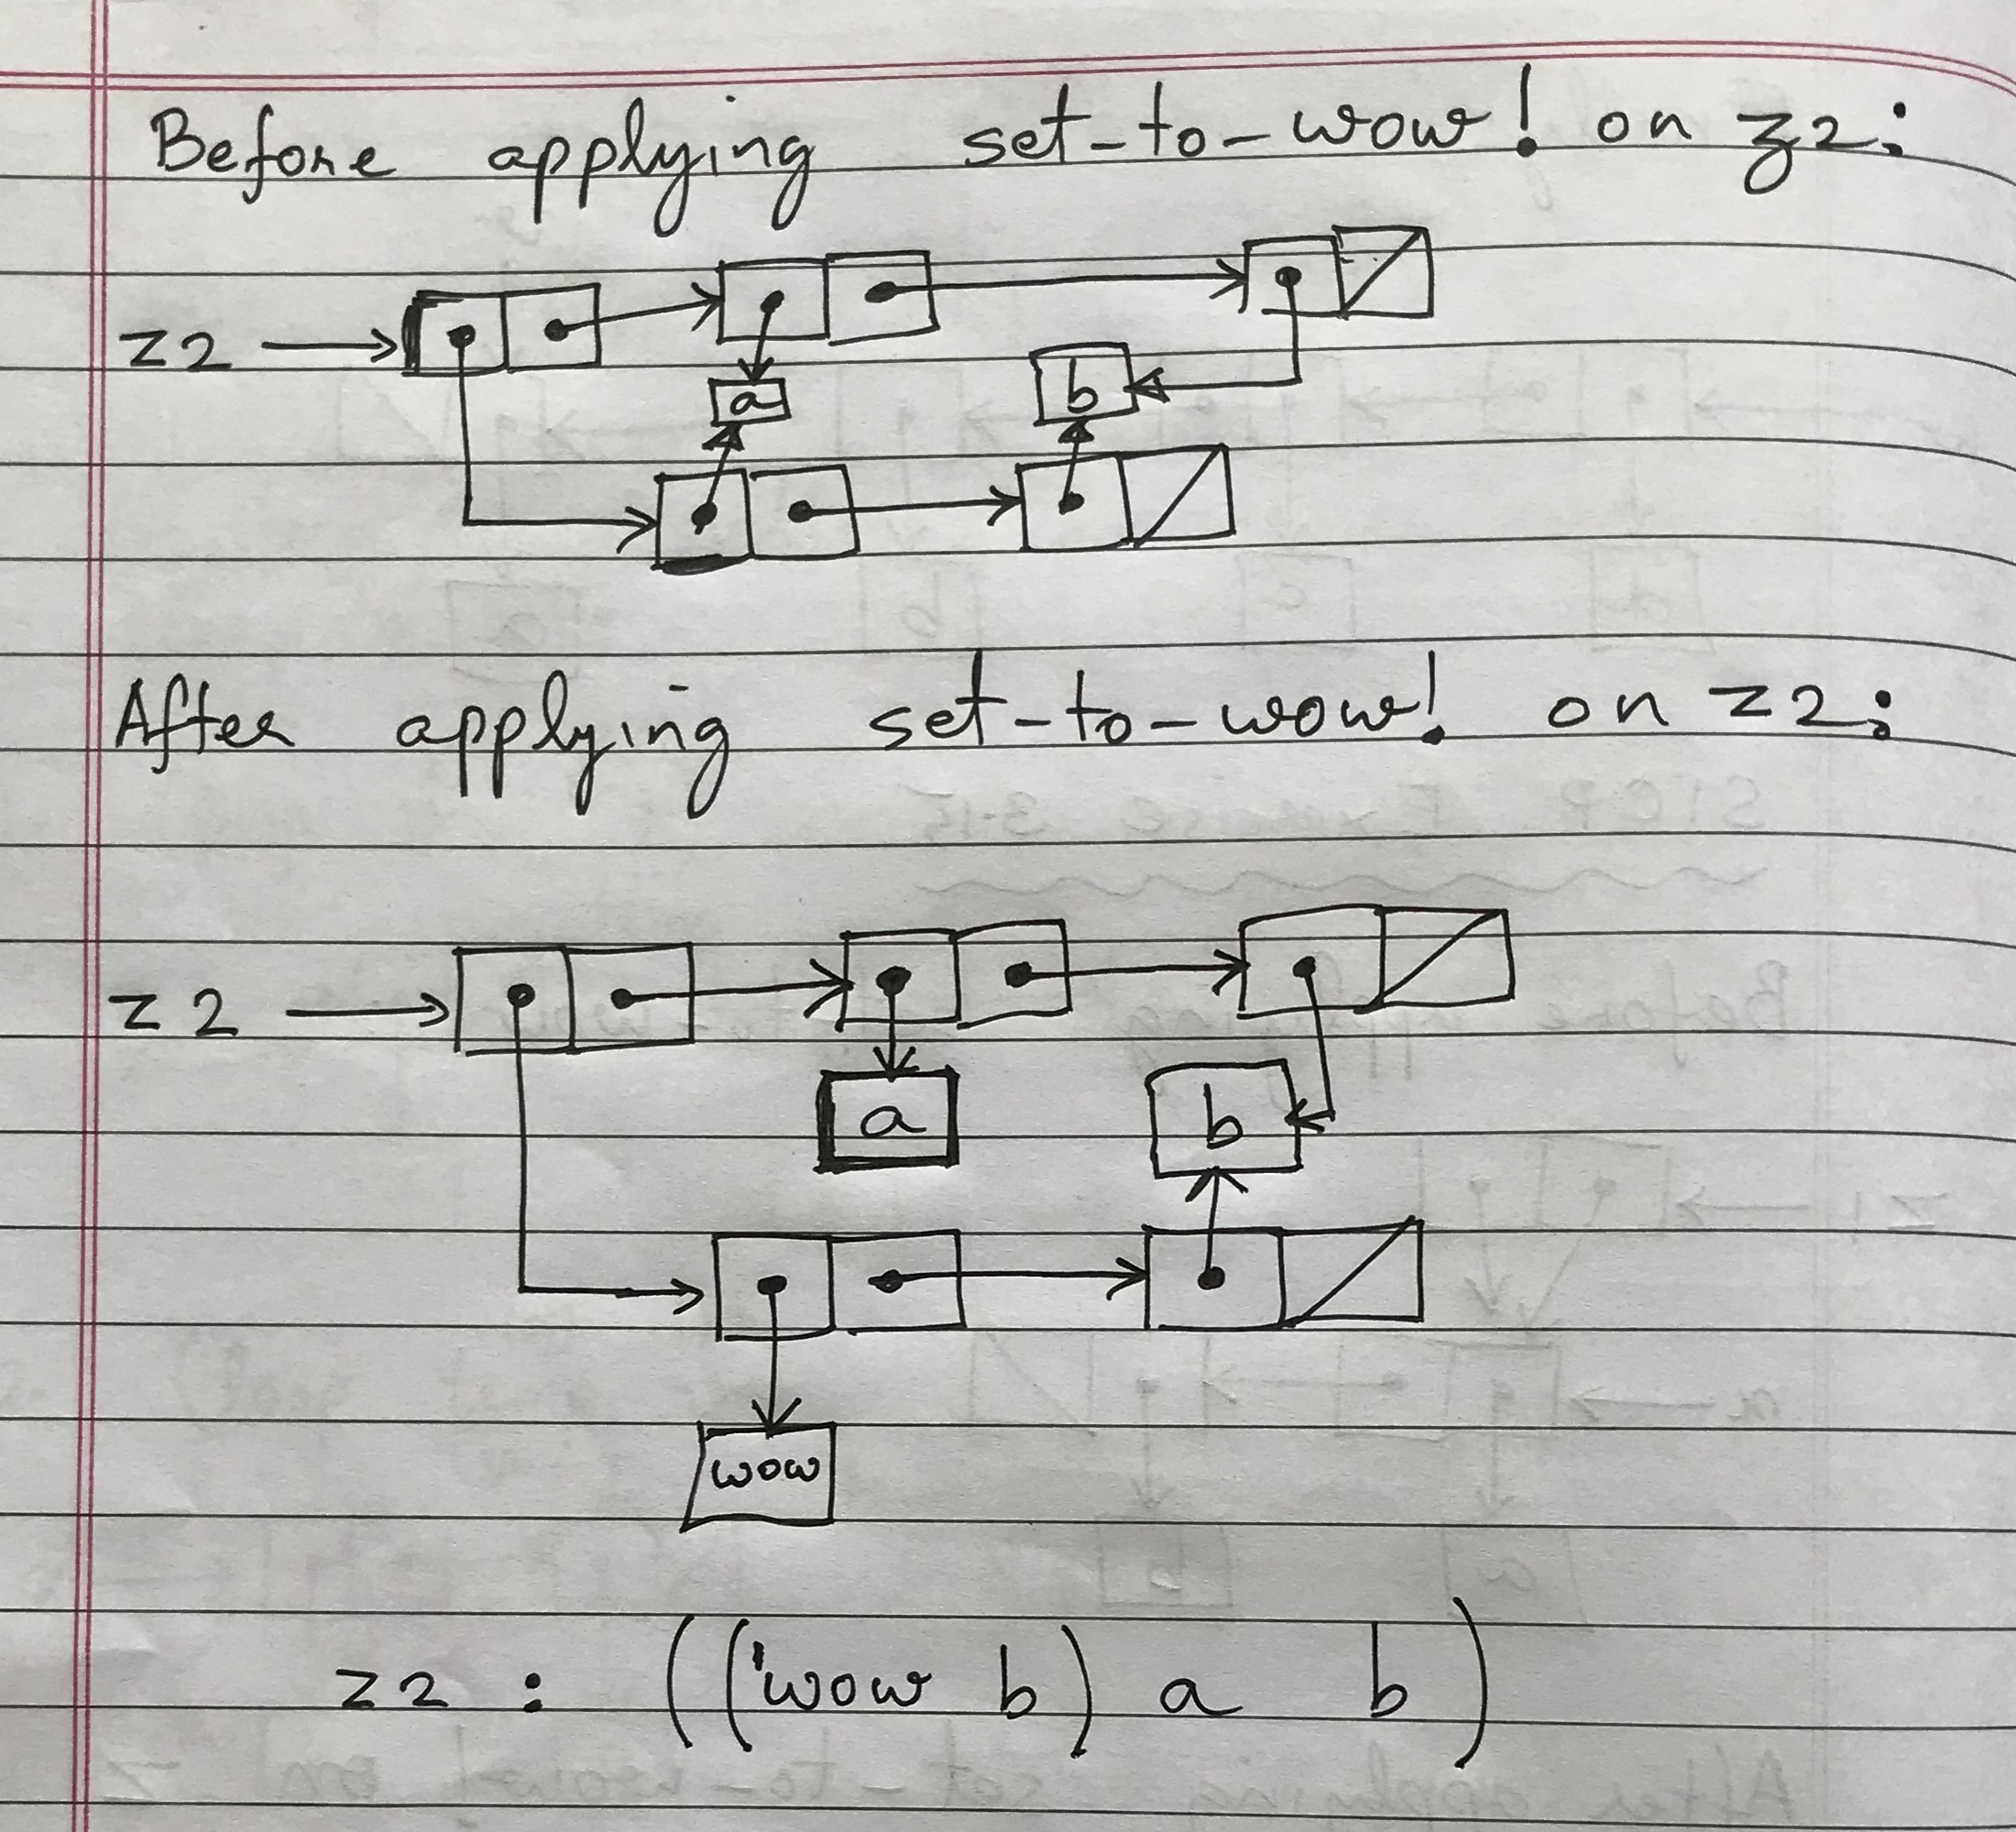 Before applying set-to-wow! on z2:
z2
a b
After applying set-to-wow! on z2:
z2
a b
wow
z2 : (('wow b) a b)